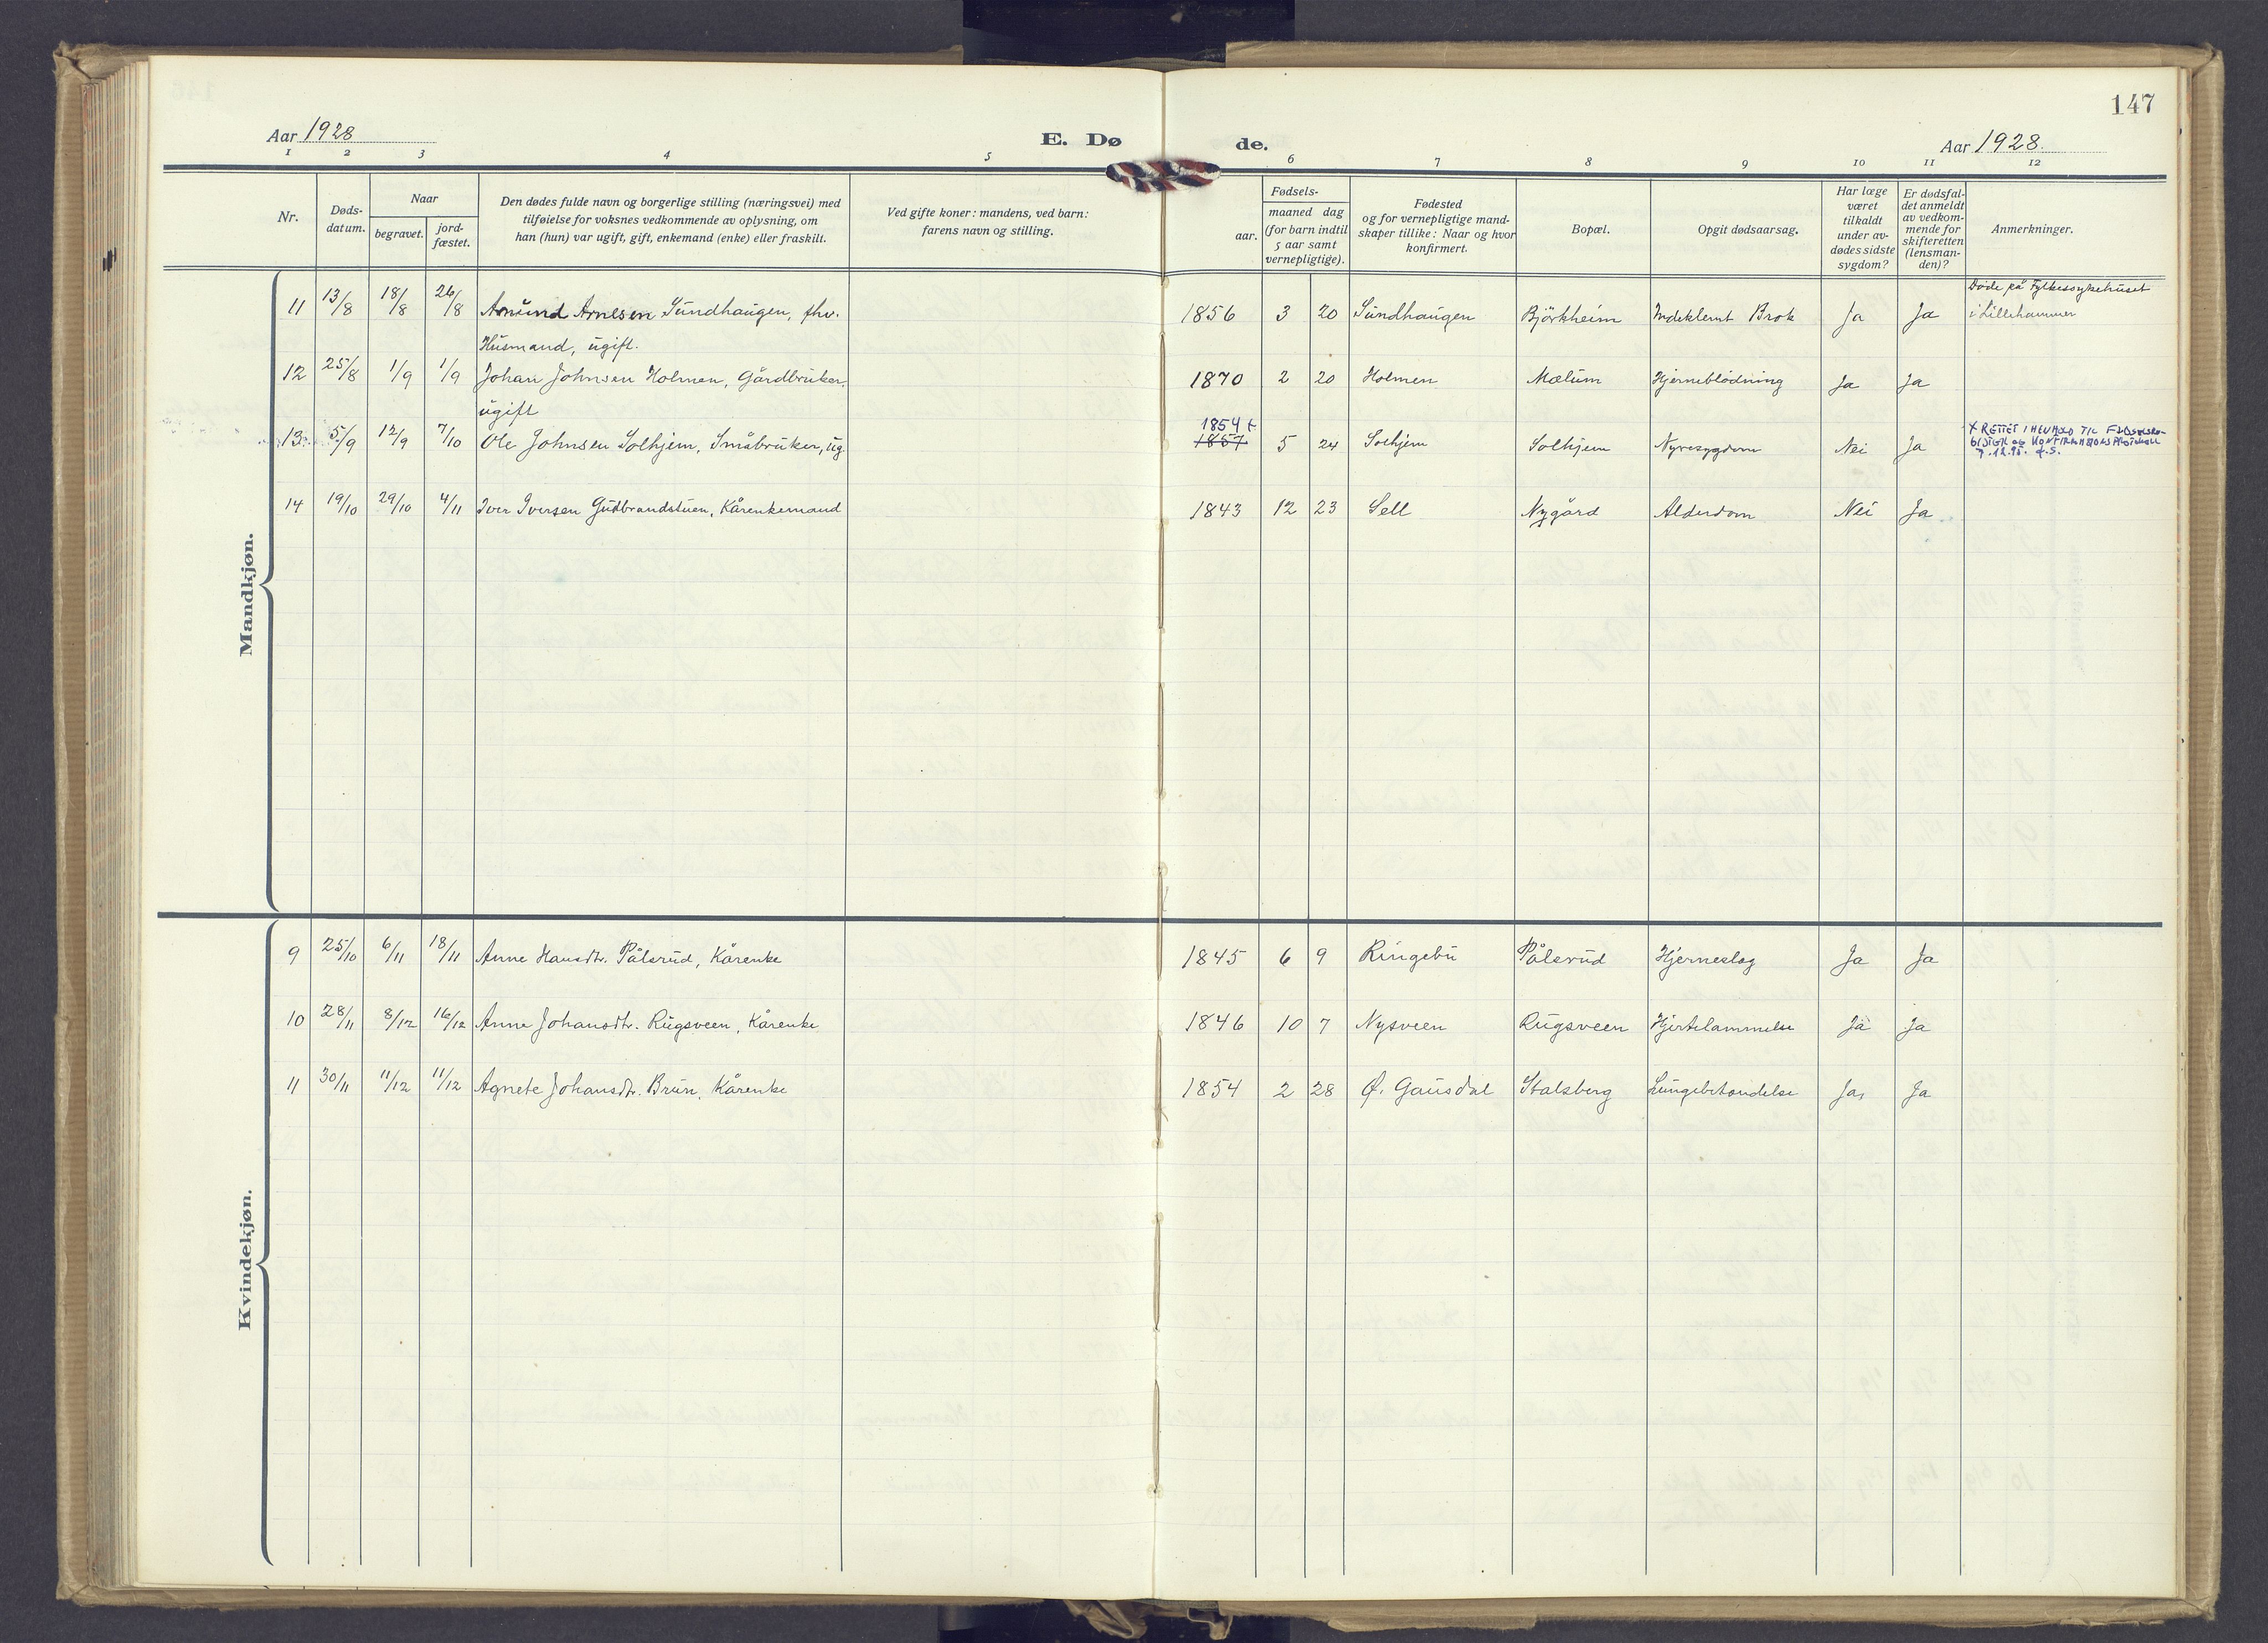 147
Aar 1928 E. Dø de. Aar 1928.
1 2 3 4 5 6 7 8 9 10 11 12
Nr.
Døds-
datum.
Naar
begravet.
jord-
fæstet.
Den dødes fulde navn og borgerlige stilling (næringsvei) med
tilføielse for voksnes vedkommende av oplysning, om
han (hun) var ugift, gift, enkemand (enke) eller fraskilt.
Ved gifte koner: mandens, ved barn:
farens navn og stilling.
Fødsels-
aar.
maaned dag
(for barn indtil
5 aar samt
vernepligtige).
Fødested
og for vernepligtige mand-
skaper tillike: Naar og hvor
konfirmert.
Bopæl.
Opgit dødsaarsag.
Har læge
været
tilkaldt
under av-
dødes sidste
sygdom?
Er dødsfal-
det anmeldt
av vedkom-
mende for
skifteretten
(lensman-
den)?
Anmerkninger.
Mandkjøn.
11 13/8 18/8 26/8 Amund Arnesen Sundhaugen, fhv. 1856 3 20 Sundhaugen Björkheim Indeklemt Brok Ja Ja Døde på Fylkessykehuset
i Lillehammer
Husmand, ugift.
12 25/8 1/9 1/9 Johan Johnsen Holmen, Gårdbruker, 1870 2 20 Holmen Mælum Hjerneblödning Ja Ja
ugift
1854 +
13 5/9 12/9 7/10 Ole Johnsen Solhjem, Småbruker, ug. 1857 5 24 Solhjem Solhjem Nyresygdom Nei Ja X RETTET I HENHOLD TIL FØDSELSRE-
GISTER og KONFIRMASJONSPROTOKOLL
14 19/10 29/10 4/11 Iver Iversen Gudbrandstuen, Kårenkemand 1843 12 23 Sell Nygård Alderdom Nei Ja
Kvindekjøn.
9 25/10 6/11 18/11 Anne Hansdtr. Pålsrud, Kårenke 1845 6 9 Ringebu Pålsrud Hjerneslag Ja Ja
10 28/11 8/12 16/12 Anne Johansdtr. Rugsveen, Kårenke 1846 10 7 Nysveen Rugsveen Hjertelammelse Ja Ja
11 30/11 11/12 11/12 Agnete Johansdtr. Brun, Kårenke 1854 2 28 Ø. Gausdal Stalsberg Lungebetændelse Ja, Ja